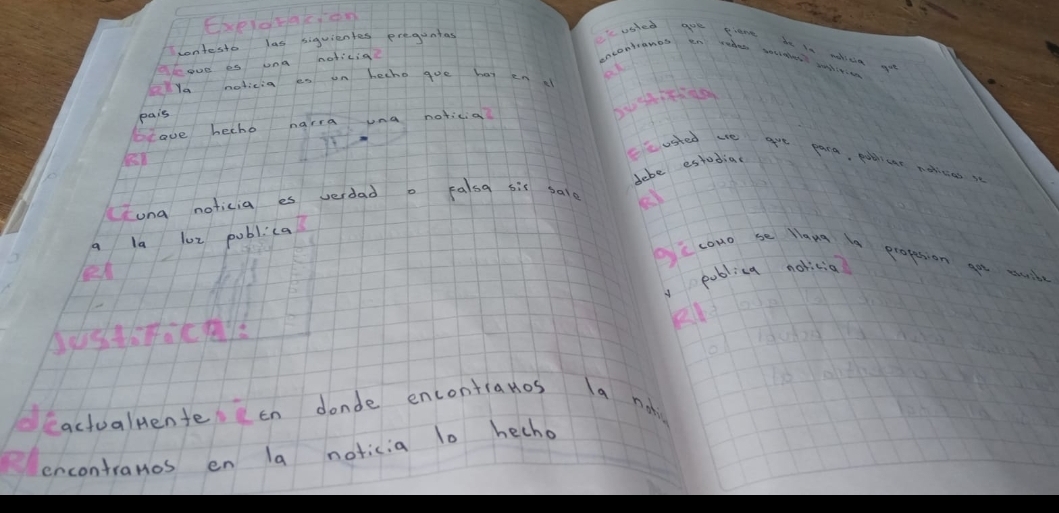 Exploracion
contesto las siguientes preguntas
a¿que es una noticia?
R/ la noticia es un hecho que hay en el
pais
b¿que hecho narra una noticia?
R/
c¿una noticia es verdad o falsa sis sale
a la luz publica?
R/
Justifica:
d¿actualmente ¿En donde encontramos la
R/ encontramos en la noticia lo hecho
e¿usted que de la noticia que
encontramos en redes
R/
Justifica
F¿usted cre que para publicar noticias se
debe estudiar
R/
g¿como se llama la profesion que escribe
y publica noticia?
R/